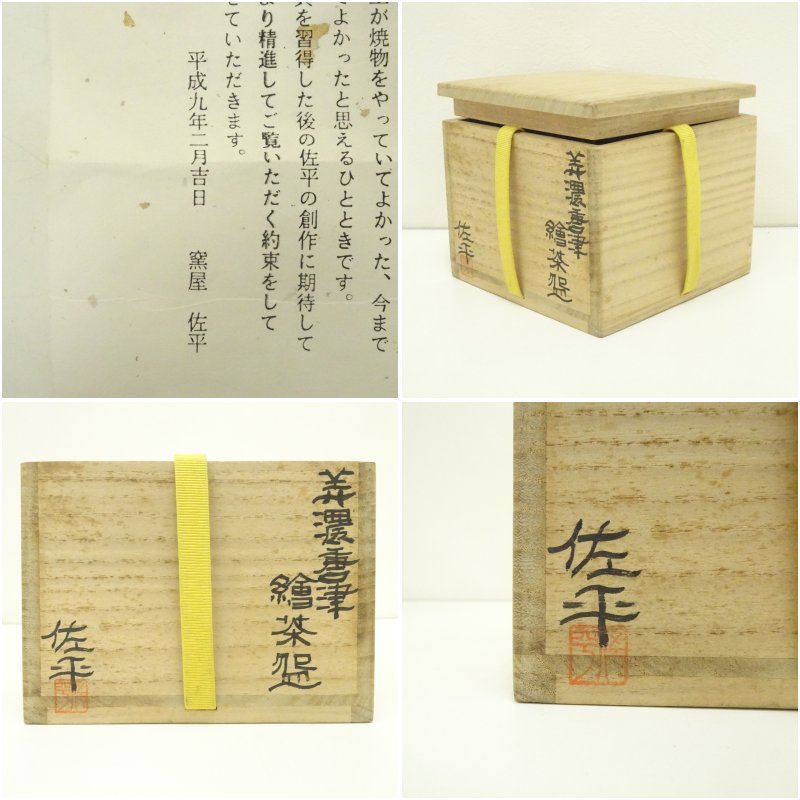 が焼物をやっていてよかった、今まで
てよかったと思えるひとときです。
を習得した後の佐平の創作に期待して
より精進してご覧いただく約束をして
せていただきます。
平成九年二月吉日　窯屋　佐平
美濃唐津
繪茶盌
佐平
美濃唐津
繪茶盌
佐平
佐平